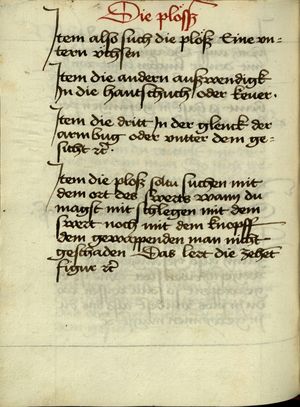 Die plöss
Item alss such die plöss Eine vn-
tern vchsen
Item die andern ausswendigk
In die hantschuch oder keuer.
Item die dritt In der glenck der
armbug oder vntter dem ge-
sicht etc.
Item die ploss soltu suchen mit
dem ort des swerts wann du
magst mit schlegen mit dem
swert noch mit dem knopff
dem gewappenden man nicht
geschaden Das lert die zehet
figur etc